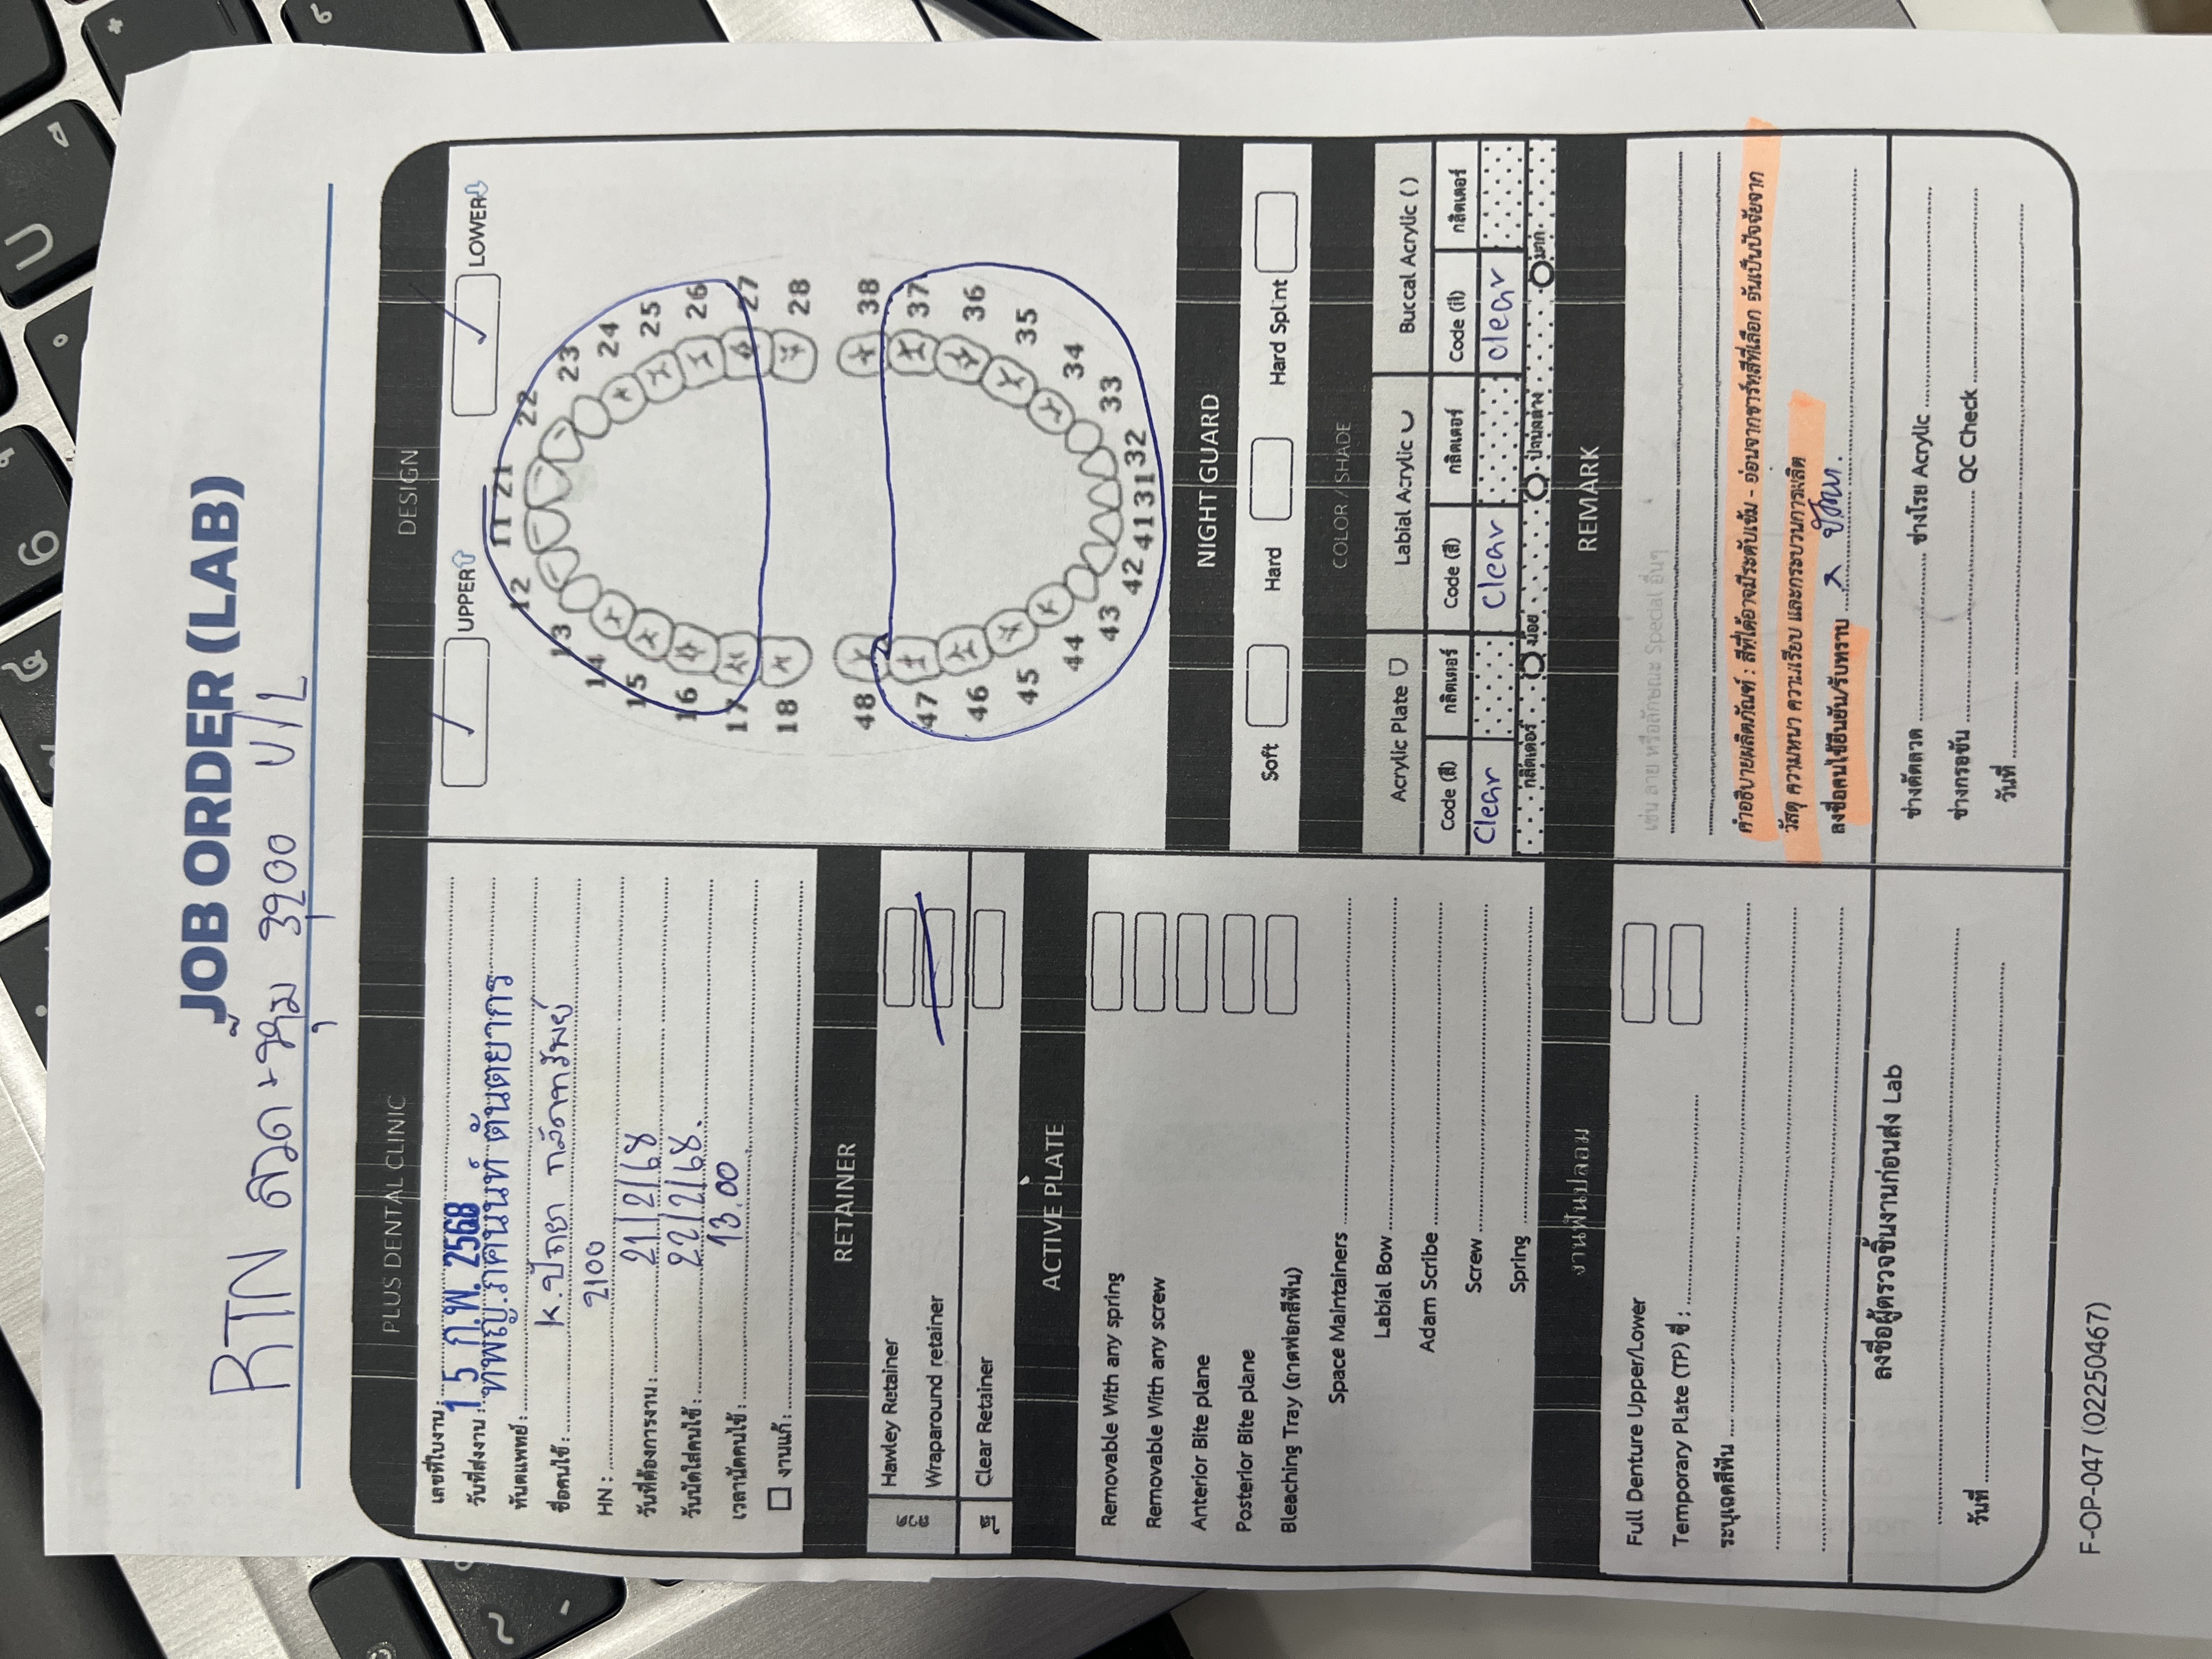 JOB ORDER (LAB)
RTN ลวด + หุ้ม 3,200 U/L
PLUS DENTAL CLINIC
เลขที่ใบงาน :
วันที่ส่งงาน : 15 ก.พ. 2568
ทันตแพทย์ : ทพญ.ภคนนท์ ตันตยากร
ชื่อคนไข้ : K.ปัถยา
HN : 2100
วันที่ต้องการงาน : 21/2/68
วันนัดใส่คนไข้ : 22/2/68.
เวลานัดคนไข้ : 13.00
งานแก้ :
RETAINER
Hawley Retainer
Wraparound retainer
Clear Retainer
ACTIVE PLATE
Removable With any spring
Removable With any screw
Anterior Bite plane
Posterior Bite plane
Bleaching Tray (ถาดฟอกสีฟัน)
Space Maintainers
Labial Bow
Adam Scribe
Screw
Spring
งานฟันปลอม
Full Denture Upper/Lower
Temporary Plate (TP) ซี่ :
ระบุเฉดสีฟัน
ลงชื่อผู้ตรวจชิ้นงานก่อนส่ง Lab
วันที่
DESIGN
UPPER LOWER
11 21
12 22
13 23
14 24
15 25
16 26
17 27
18 28
48 38
47 37
46 36
45 35
44 34
43 33
42 41 31 32
NIGHT GUARD
Soft Hard Hard Splint
COLOR / SHADE
Acrylic Plate Labial Acrylic Buccal Acrylic ( )
Code (สี) กลิตเตอร์ Code (สี) กลิตเตอร์ Code (สี) กลิตเตอร์
Clear Clear Clear
กลิตเตอร์ น้อย ปานกลาง มาก
REMARK
เช่น ลาย หรือลักษณะ Special อื่นๆ
คำอธิบายผลิตภัณฑ์ : สีที่ได้อาจมีระดับเข้ม - อ่อนจากชาร์ทสีที่เลือก อันเป็นปัจจัยจาก
วัสดุ ความหนา ความเรียบ และกระบวนการผลิต
ลงชื่อคนไข้ยืนยัน/รับทราบ
ช่างดัดลวด ช่างโรย Acrylic
ช่างกรอขัน QC Check
วันที่
F-OP-047 (02250467)